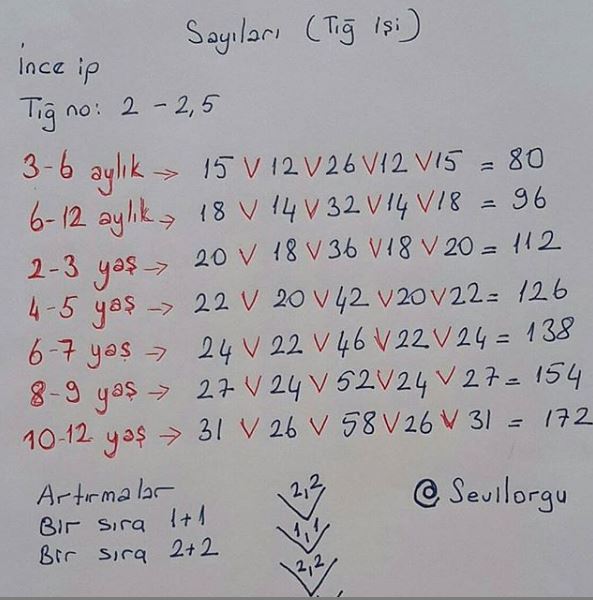 Sayıları (Tığ işi)
İnce ip
Tığ no: 2 - 2,5
3-6 aylık → 15 V 12 V 26 V 12 V 15 = 80
6-12 aylık → 18 V 14 V 32 V 14 V 18 = 96
2-3 yaş → 20 V 18 V 36 V 18 V 20 = 112
4-5 yaş → 22 V 20 V 42 V 20 V 22 = 126
6-7 yaş → 24 V 22 V 46 V 22 V 24 = 138
8-9 yaş → 27 V 24 V 52 V 24 V 27 = 154
10-12 yaş → 31 V 26 V 58 V 26 V 31 = 172
Artırmalar
Bir sıra 1+1
Bir sıra 2+2
2,2
1,1
2,2
@Sevilorgu